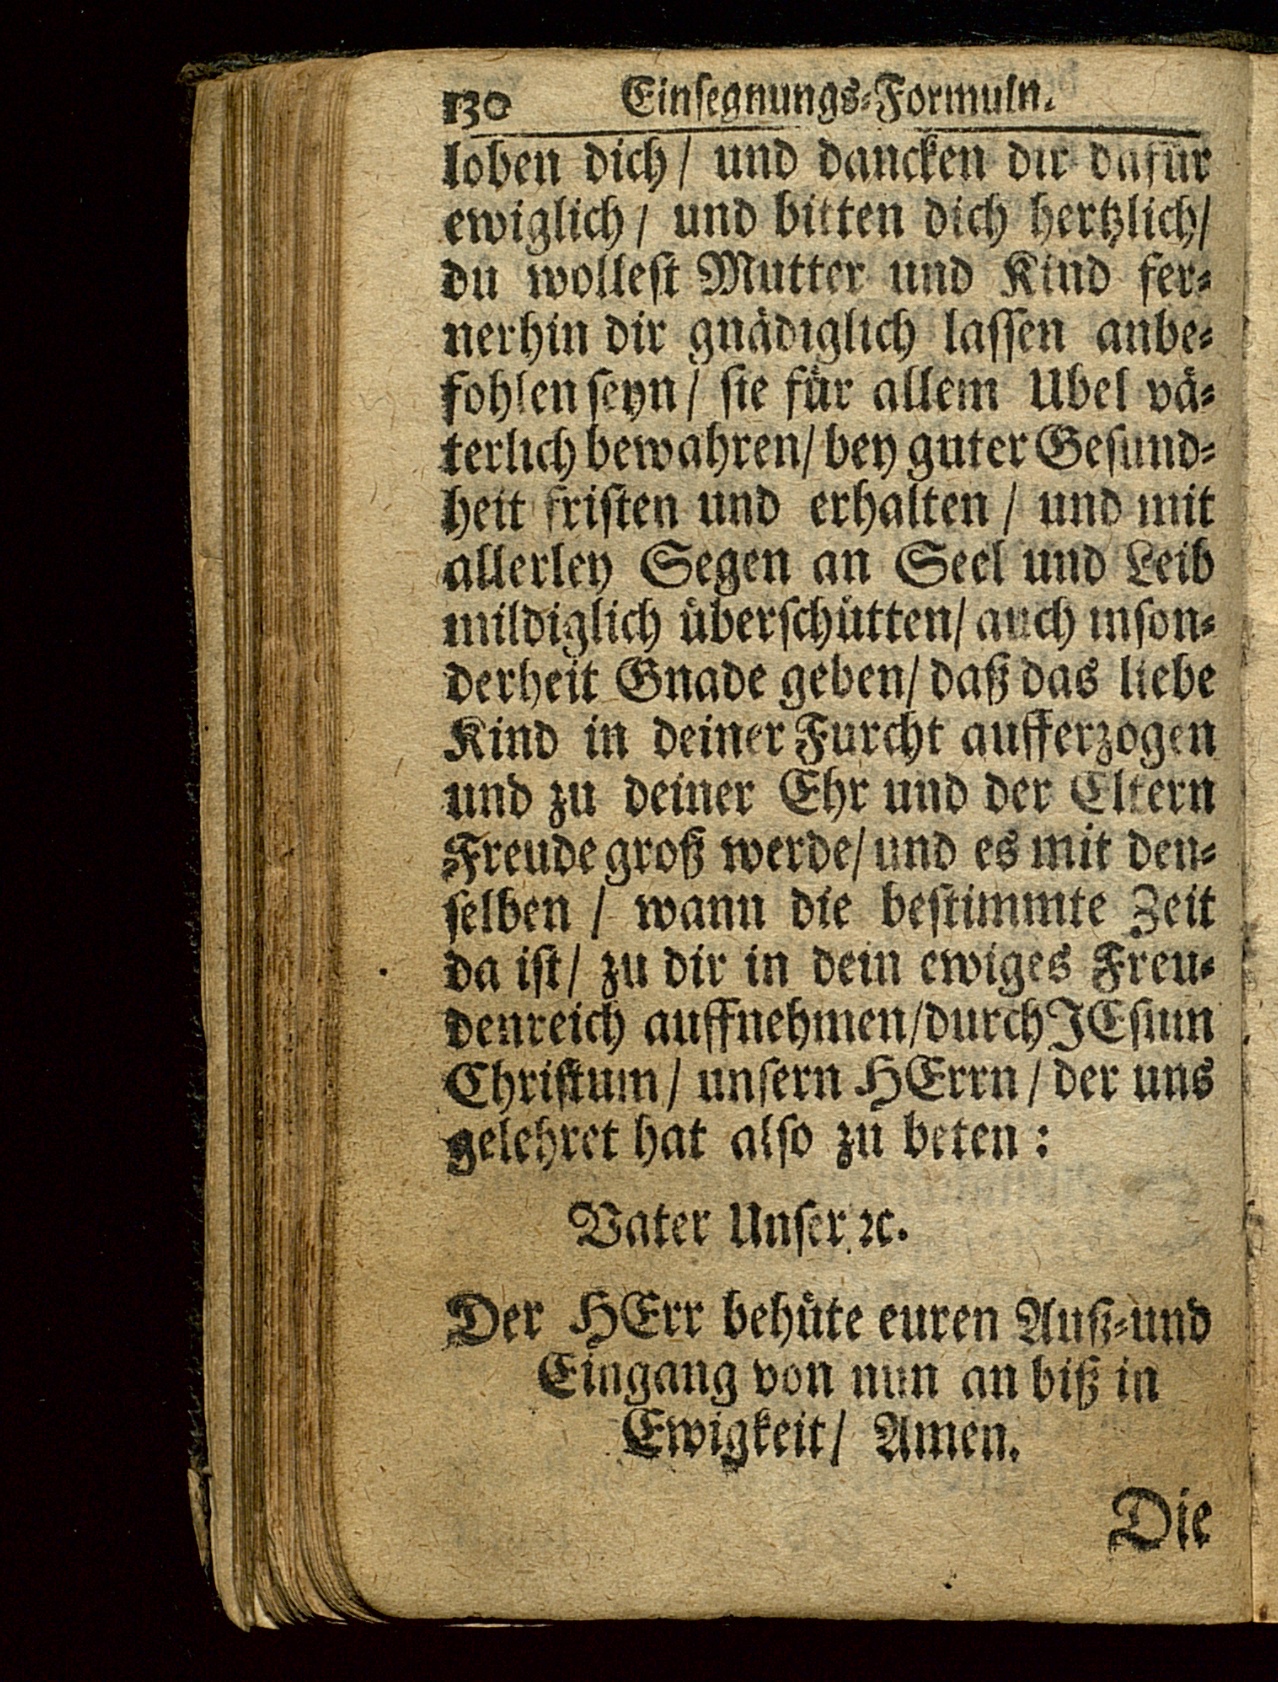 130 Einsegnungs-Formuln.
loben dich/ und dancken dir dafür
ewiglich/ und bitten dich hertzlich/
du wollest Mutter und Kind fer-
nerhin dir gnädiglich lassen anbe-
fohlen seyn/ sie für allem Ubel vä-
terlich bewahren/ bey guter Gesund-
heit fristen und erhalten/ und mit
allerley Segen an Seel und Leib
mildiglich überschütten/ auch inson-
derheit Gnade geben/ daß das liebe
Kind in deiner Furcht aufferzogen
und zu deiner Ehr und der Eltern
Freude groß werde/ und es mit den-
selben/ wann die bestimmte Zeit
da ist/ zu dir in dein ewiges Freu-
denreich auffnehmen/durch JEsum
Christum/ unsern HErrn/ der uns
gelehret hat also zu beten:
Vater Unser ꝛc.
Der HErr behüte euren Auß-und
Eingang von nun an biß in
Ewigkeit/ Amen.
Die